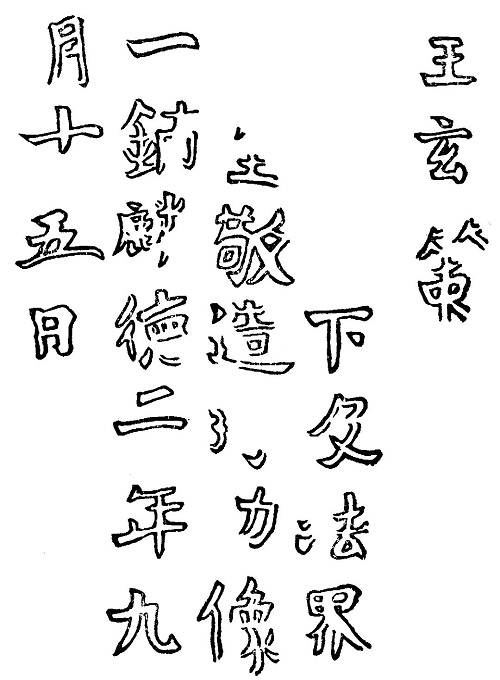 王玄策
下及法界
敬造像
一鋪麟德二年九
月十五日